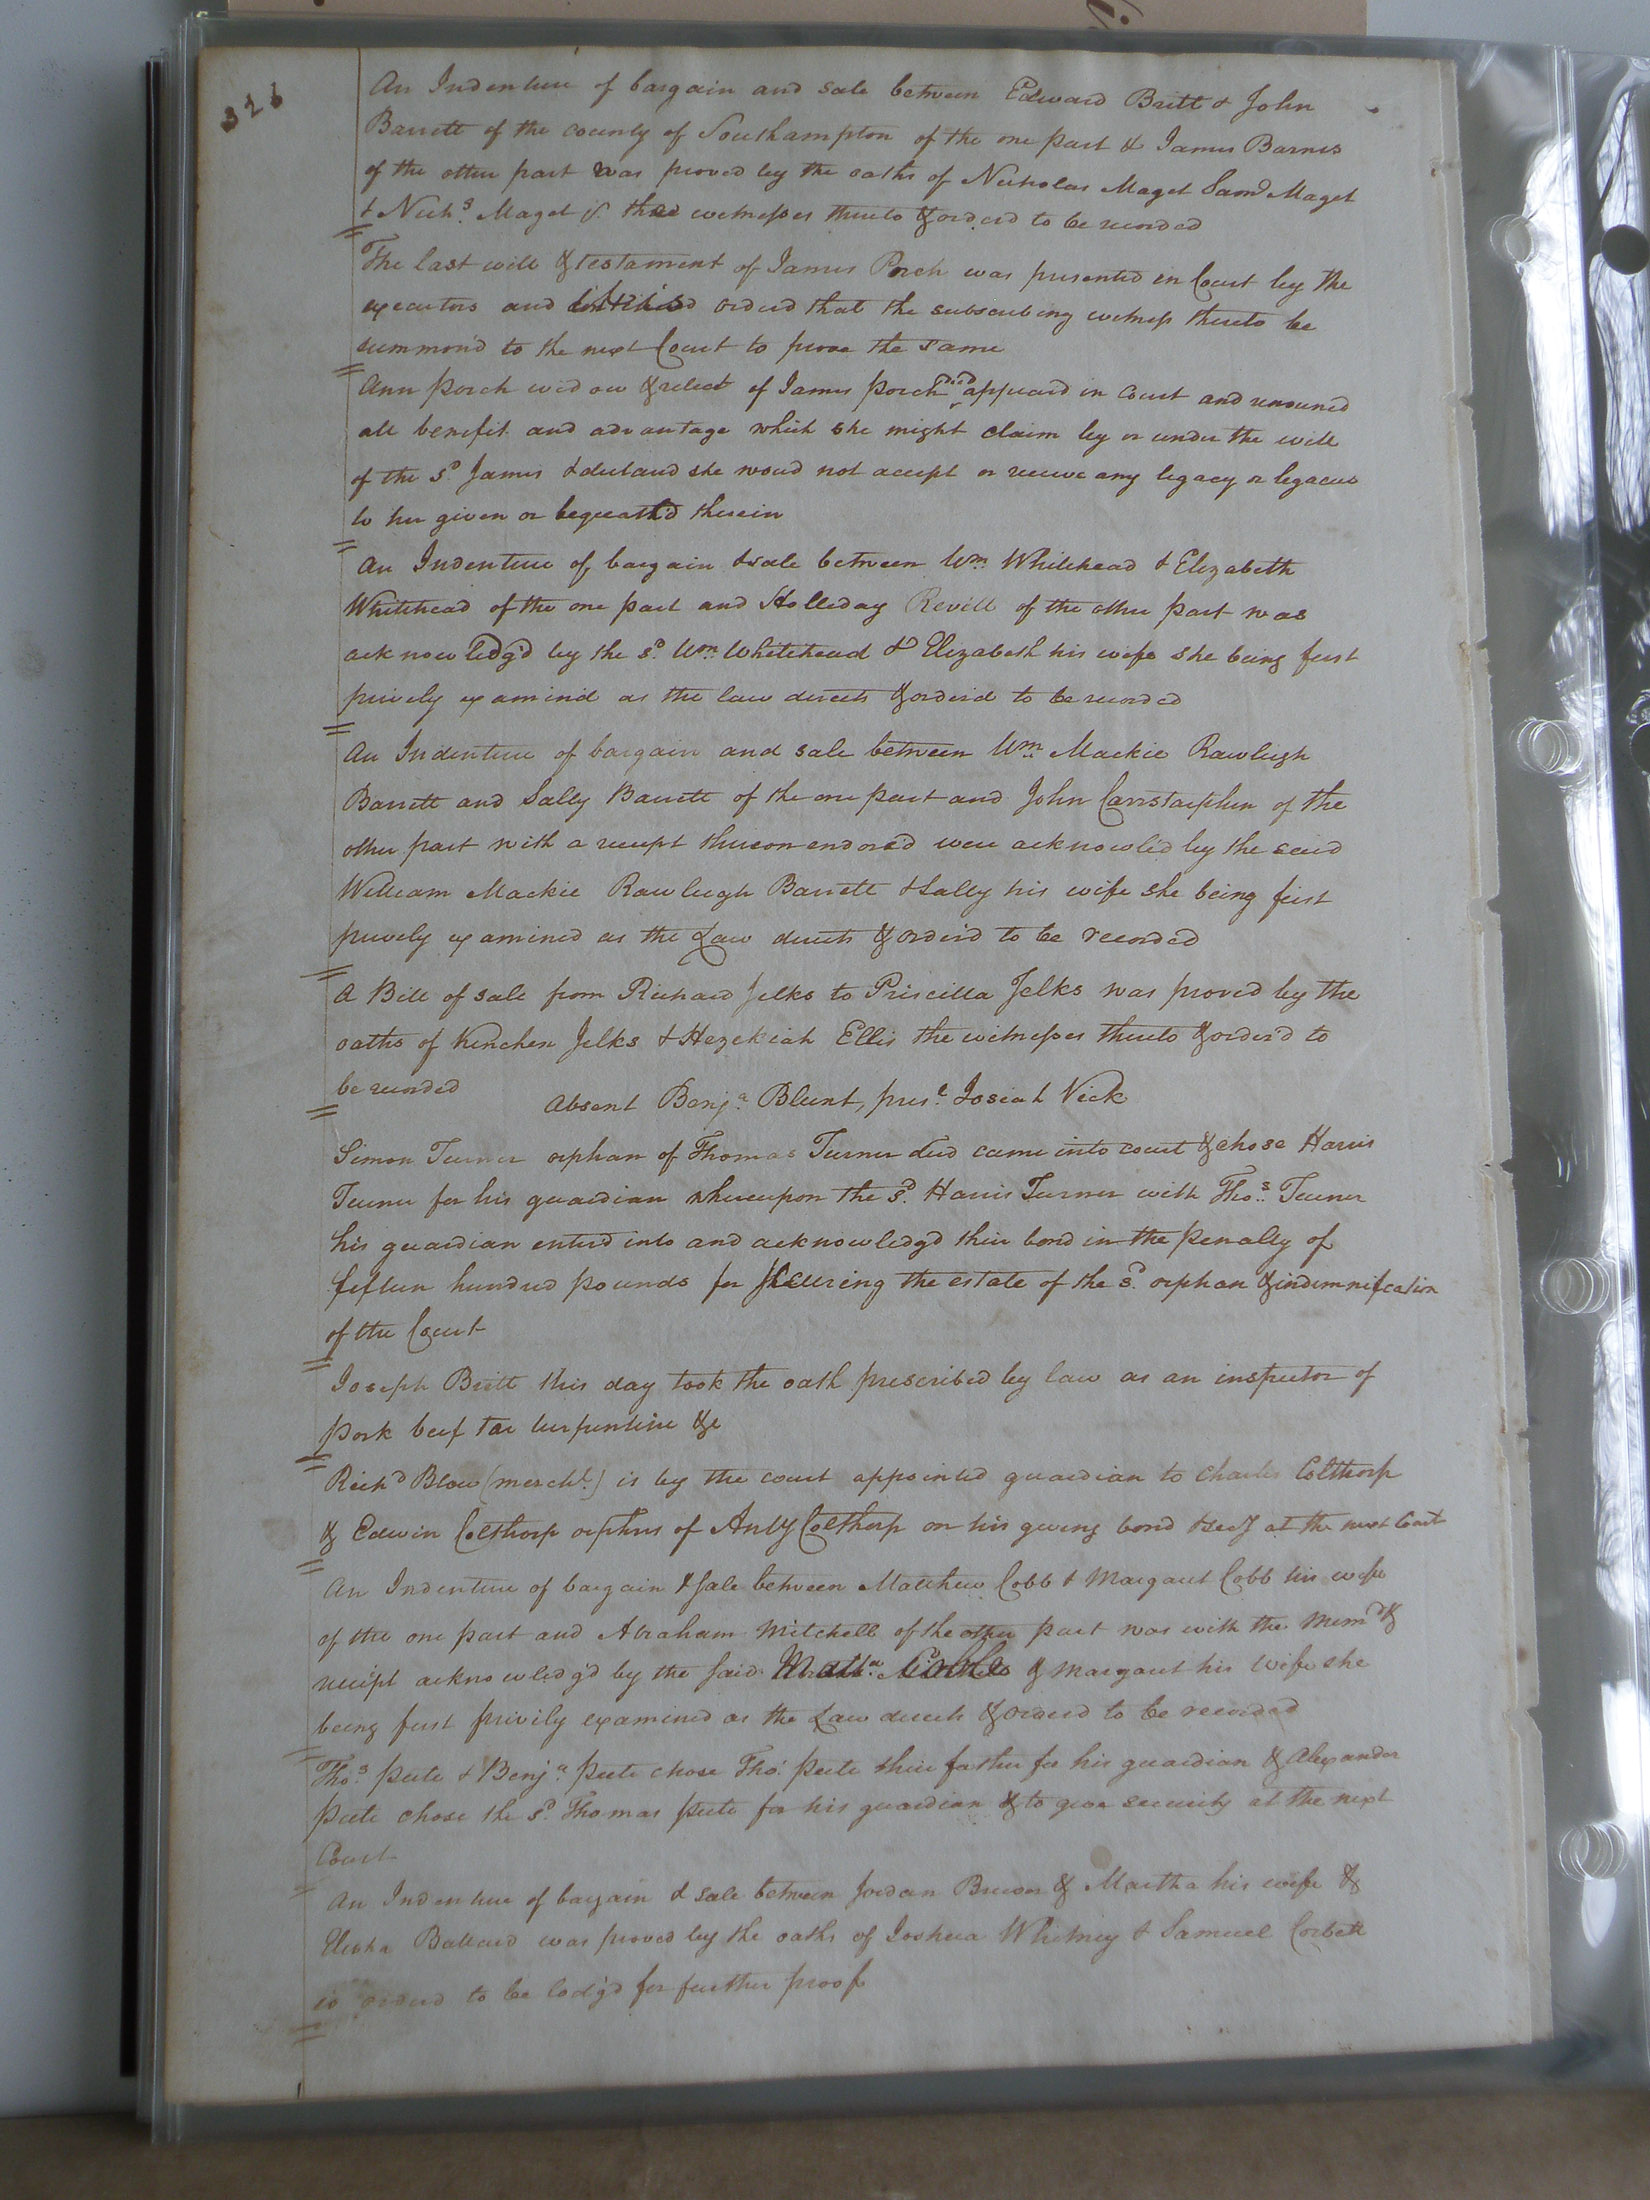 326
An Indenture of bargain and sale between Edward Britt & John
Barrett of the county of Southampton of the one part & James Barnes
of the other part was proved by the oaths of Nicholas Maget Saml Maget
& Nichs. Maget jr three witnesses thereto & orderd to be recorded
The last will & testament of James Porch was presented in Court by the
executors and orderd that the subscribing witness thereto be
summon'd to the next Court to prove the same
Ann Porch widow & relict of James Porch decd appeard in Court and renounced
all benefit and advantage which she might claim by or under the will
of the sd. James & declared she woud not accept or receive any legacy or legacies
to her given or bequeath'd therein
An Indenture of bargain & sale between Wm. Whitehead & Elizabeth
Whitehead of the one part and Holleday Revill of the other part was
acknowledg'd by the sd. Wm. Whitehead & Elizabeth his wife she being first
privily examined as the law directs & orderd to be recorded
An Indenture of bargain and sale between Wm. Mackie Rawleigh
Barrett and Sally Barrett of the one part and John Carrstarphen of the
other part with a receipt thereon endorsd were acknowled by the said
William Mackie Rawleigh Barrett & Sally his wife she being first
privily examined as the Law directs & order'd to be recorded
A Bill of sale from Richard Jelks to Priscilla Jelks was proved by the
oaths of Kinchen Jelks & Hezekiah Ellis the witnesses thereto & order'd to
be recorded
Absent Benja. Blunt, prest. Josiah Vick
Simon Turner orphan of Thomas Turner decd came into court & chose Harris
Turner for his guardian whereupon the sd. Harris Turner with Thos. Turner
his guardian enterd into and acknowledg'd their bond in the penalty of
fifteen hundred pounds for securing the estate of the sd. orphan & indemnification
of the Court
Joseph Britt this day took the oath prescribed by law as an inspector of
pork beef tar turpentine &c
Richd Blow (mercht.) is by the court appointed guardian to Charles Colthorp
& Edwin Colthorp orphns of Anty Colthorp on his giving bond & secy at the next Court
An Indenture of bargain & sale between Matthew Cobb & Margaret Cobb his wife
of the one part and Abraham Mitchell of the other part was with the Memd &
receipt acknowledg'd by the said & Margaret his wife she
being first privily examined as the Law directs & orderd to be recorded
Thos. Peete & Benja. Peete chose Tho. Peete their father for his guardian & Alexander
Peete chose the sd. Thomas Peete for his guardian & to give security at the next
Court
An Indenture of bargain & sale between Jordan & Martha his wife &
Elisha Ballard was proved by the oaths of Joshua Whitney & Samuel Corbett
orderd to be lodg'd for further proof